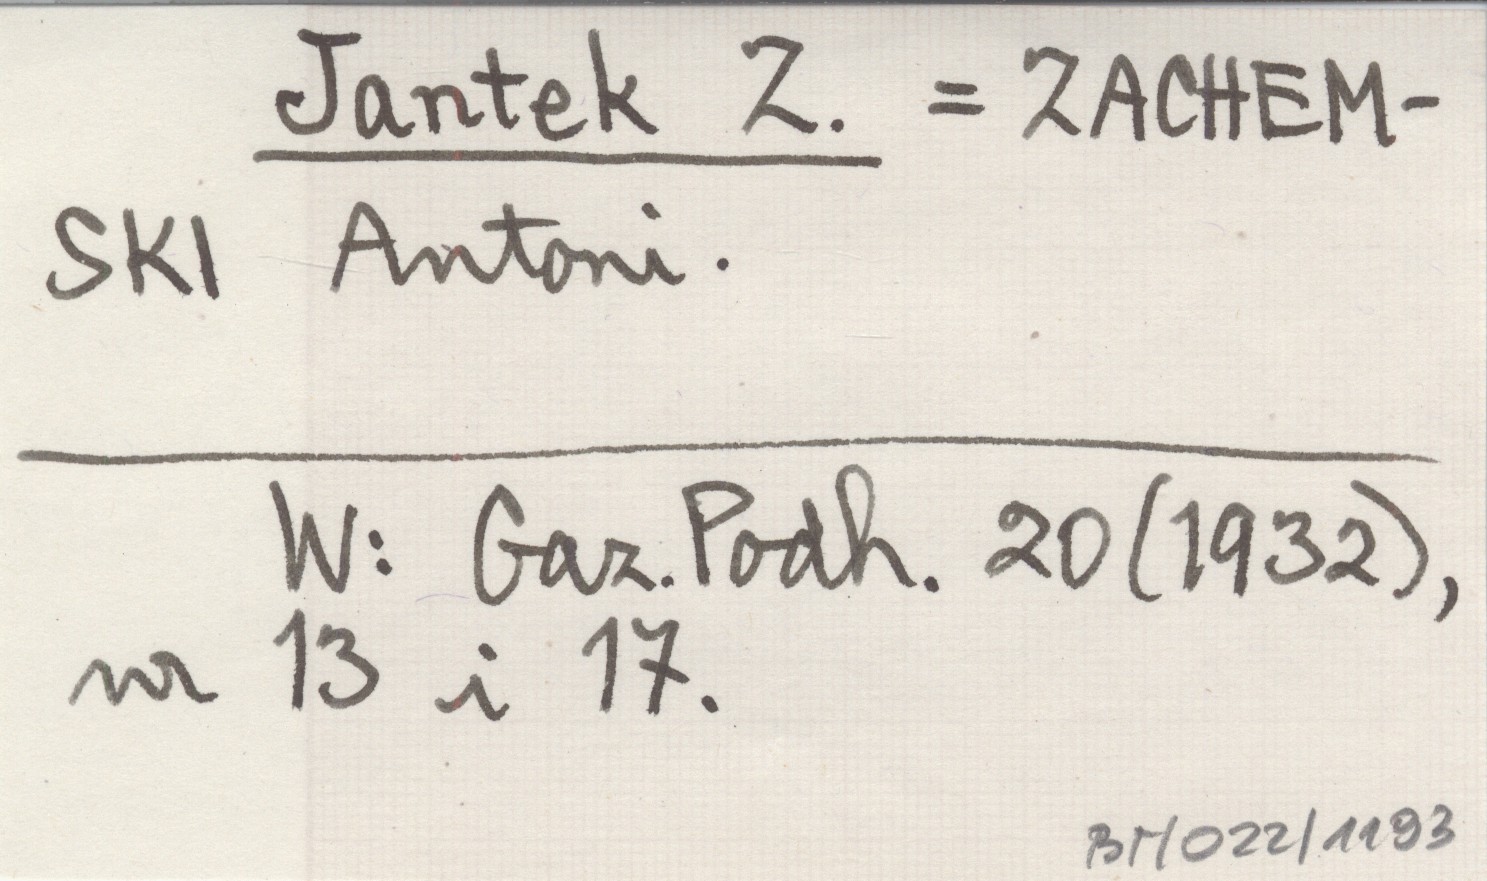 Jantek Z. = ZACHEM-
SKI Antoni.
W: Gaz. Podh. 20(1932),
nr 13 i 17.
BM/022/1193